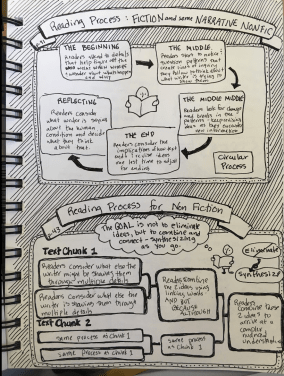 Reading Process: FICTION and some NARRATIVE NONFIC
THE BEGINNING
Readers attend to details
that help figure out the
wonder about what happens
and why
THE MIDDLE
Readers start to notice
question patterns that
create lines of inquiry
they follow to think about
what writer is trying to
show them
THE MIDDLE MIDDLE
Readers look for changes
and breaks in the
patterns - keep revising
ideas as they encounter
new information
THE END
Readers consider the
implication of how text
ends & revise ideas
one last time to adjust
for ending
REFLECTING
Readers consider
what writer is saying
about the human
condition and decide
what they think
about that
Circular
Process
Reading Process for Non Fiction
The GOAL is not to eliminate
ideas, but to combine and
connect - synthesizing
as you go.
eliminate
synthesize
Text Chunk 1
Readers consider what else the
writer might be showing them
through multiple details
Readers consider what else the
writer is showing them through
multiple details
Readers combine
the 2 ideas using
linking words
AND BUT
BECAUSE
ALTHOUGH
Text Chunk 2
Same process as chunk 1
Same process as chunk 1
Same process
as chunk 1
Readers
combine these
2 ideas to
arrive at a
complex
nuanced
understanding